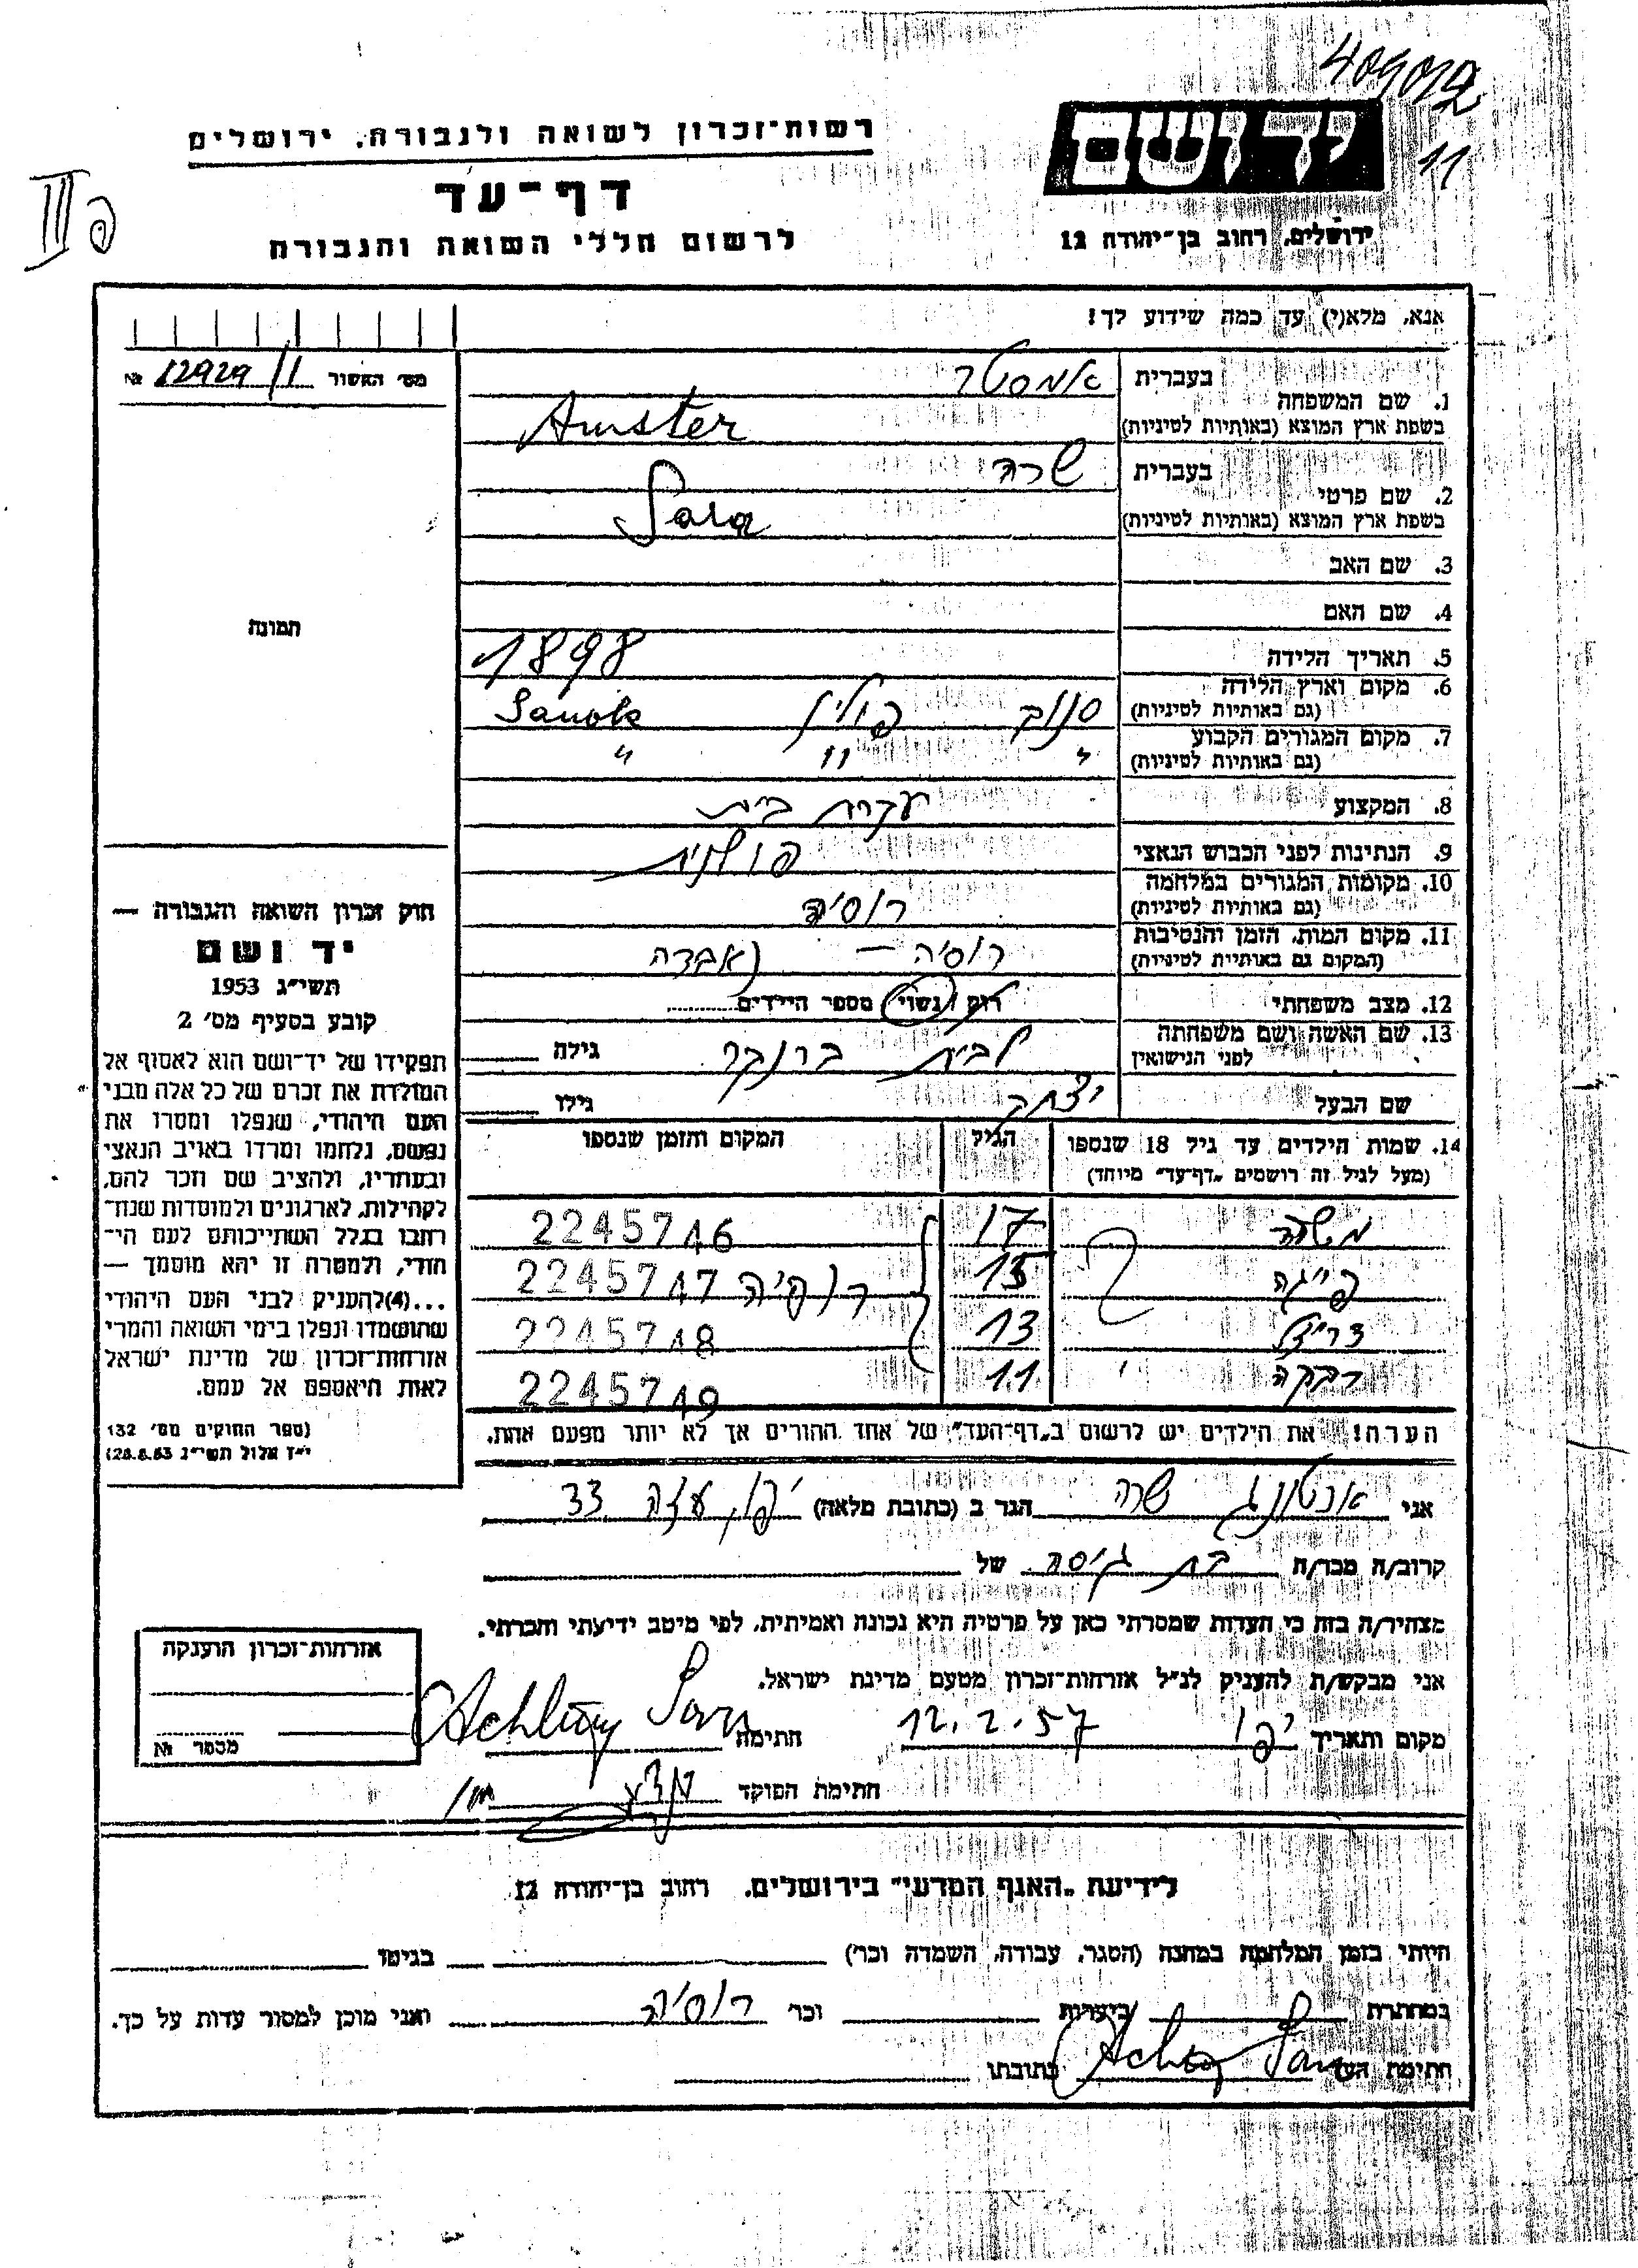 409012
11
יד ושם
ירושלים, רחוב בן־יהודה 12
רשות־זכרון לשואה ולגבורה, ירושלים
דף־עד
לרשום חללי השואה והגבורה
III
אנא, מלא(י) עד כמה שידוע לך!
מס׳ האשור 12929/1 №
1. שם המשפחה בעברית אמסטר
בשפת ארץ המוצא (באותיות לטיניות) Amster
2. שם פרטי בעברית שרה
בשפת ארץ המוצא (באותיות לטיניות) Sara
3. שם האב
4. שם האם
תמונה
5. תאריך הלידה 1898
6. מקום וארץ הלידה (גם באותיות לטיניות) סנוק פולין Sanok
7. מקום המגורים הקבוע (גם באותיות לטיניות) " " "
8. המקצוע עקרת בית
9. הנתינות לפני הכבוש הנאצי פולנית
10. מקומות המגורים במלחמה (גם באותיות לטיניות) רוסיה
11. מקום המות, הזמן והנסיבות (המקום גם באותיות לטיניות) רוסיה – נאבדה
12. מצב משפחתי רווק / נשוי מספר הילדים
13. שם האשה ושם משפחתה לפני הנישואין לבית ברנקר גילה
שם הבעל יצחק גילו
14. שמות הילדים עד גיל 18 שנספו הגיל המקום והזמן שנספו
(מעל לגיל זה רושמים „דף־עד" מיוחד)
משה 17 2245746
פייגה 15 רוסיה 2245747
13 2245748
רבקה 11 2245749
הערה! את הילדים יש לרשום ב„דף־העד" של אחד ההורים אך לא יותר מפעם אחת.
חוק זכרון השואה והגבורה —
יד ושם
תשי״ג 1953
קובע בסעיף מס׳ 2
תפקידו של יד־ושם הוא לאסוף אל
המולדת את זכרם של כל אלה מבני
העם היהודי, שנפלו ומסרו את
נפשם, נלחמו ומרדו באויב הנאצי
ובעוזריו, ולהציב שם וזכר להם,
לקהילות, לארגונים ולמוסדות שנח־
רבו בגלל השתייכותם לעם הי־
הודי, ולמטרה זו יהא מוסמך —
...(4) להעניק לבני העם היהודי
שהושמדו ונפלו בימי השואה והמרי
אזרחות־זכרון של מדינת ישראל
לאות היאספם אל עמם.
(ספר החוקים מס׳ 132
י״ז אלול תשי״ג 28.8.53)
אני שרה הגר ב (כתובת מלאה) יפו, עזה 33
קרוב/ה מכר/ה בת גיסה של
מצהיר/ה בזה כי העדות שמסרתי כאן על פרטיה היא נכונה ואמיתית, לפי מיטב ידיעתי והכרתי.
אני מבקש/ת להעניק לנ״ל אזרחות־זכרון מטעם מדינת ישראל.
מקום ותאריך יפו 12.2.57 חתימה Sara
חתימת הפוקד
אזרחות־זכרון הוענקה
מספר №
לידיעת „האגף המדעי" בירושלים. רחוב בן־יהודה 12
הייתי בזמן המלחמה במחנה (הסגר, עבודה, השמדה וכר׳) בגיטו
במחתרת ביערות וכר רוסיה ואני מוכן למסור עדות על כך.
חתימת העד Sara כתובתו